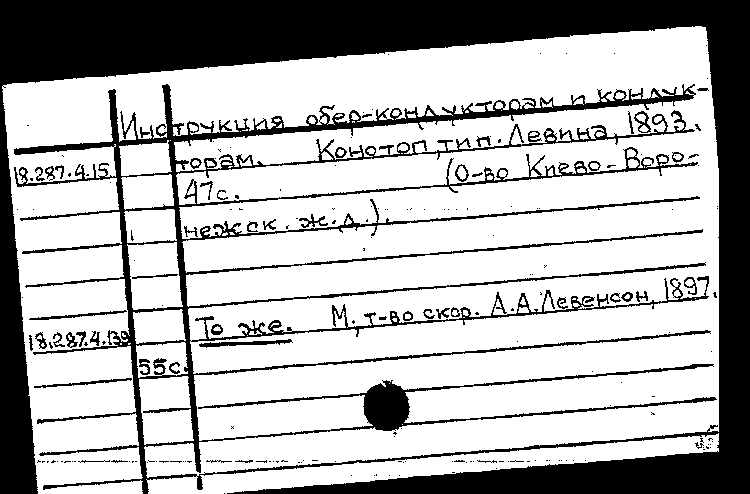 Инструкция обер-кондукторам и кондук-
18.287.4.15 торам. Конотоп, тип. Левина, 1893.
47с. (О-во Киево-Воро-
нежск. ж.д.).
18.287.4.139 То же. М., т-во скор. А.А.Левенсон, 1897.
55с.